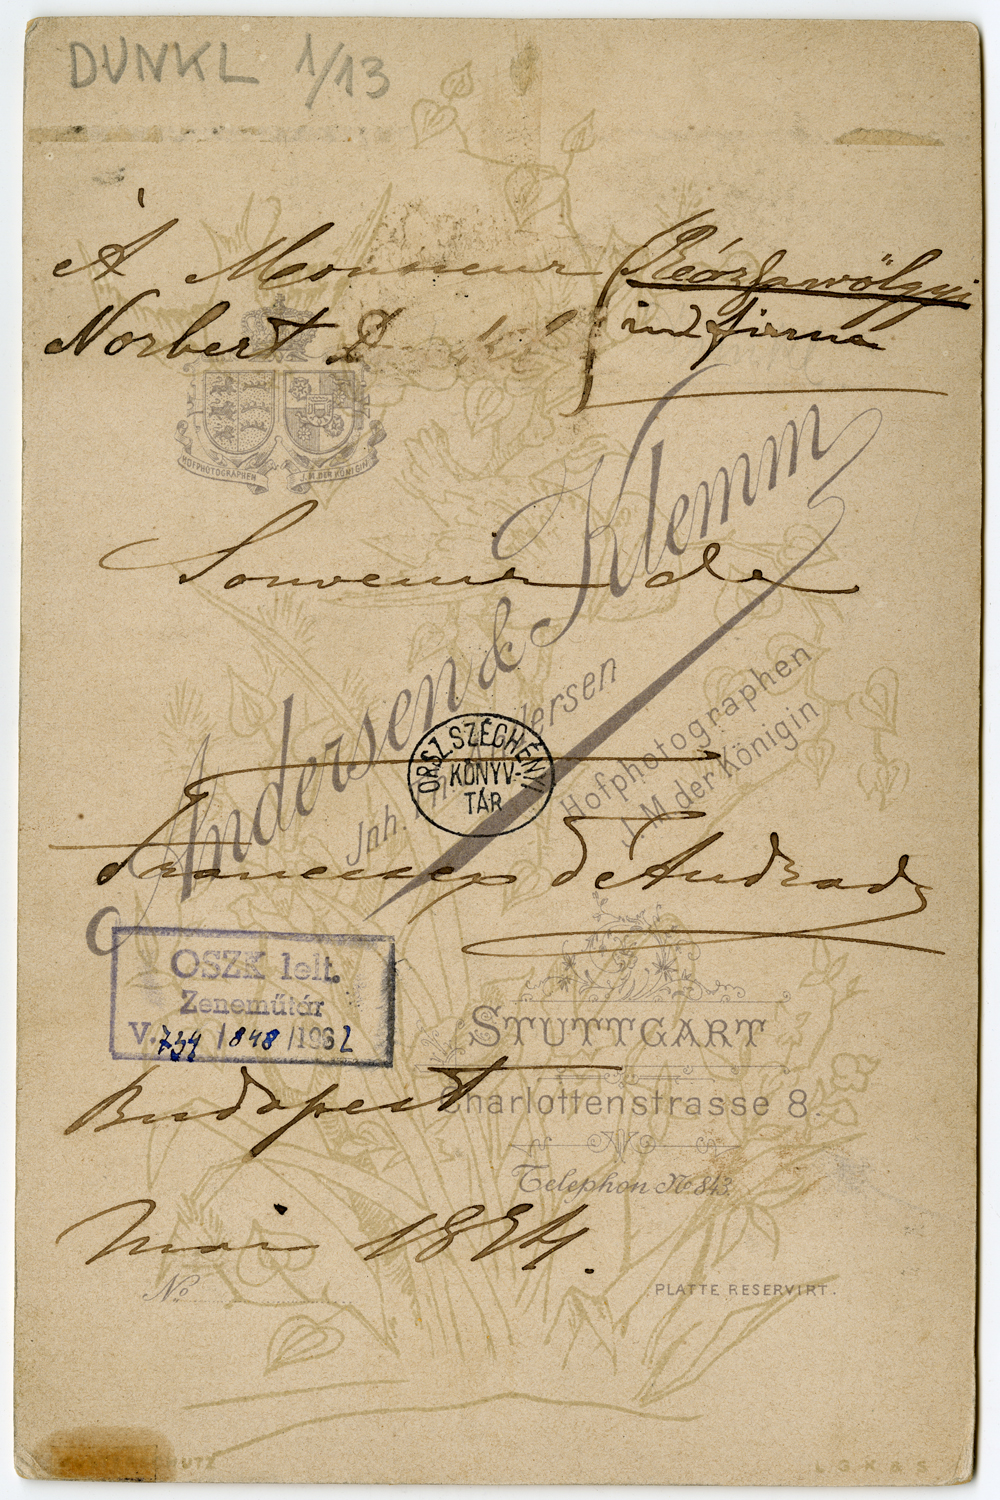 DUNKL 1/13
À Monsieur
Norbert
Rózsavölgyi
firma
HOFPHOTOGRAPHEN
I. M. DER KÖNIGIN
Souvenir de
Andersen & Klemm
Jnh. Andersen
Hofphotographen
J. M. der Königin
ORSZ. SZÉCHÉNYI
KÖNYV-
TÁR
Francesco d'Andrade
OSZK lelt.
Zeneműtár
V. 734 / 848 / 1962
STUTTGART
Charlottenstrasse 8.
Telephon No 843.
Budapest
Mai 1894.
No
PLATTE RESERVIRT.
L. G. K & S.